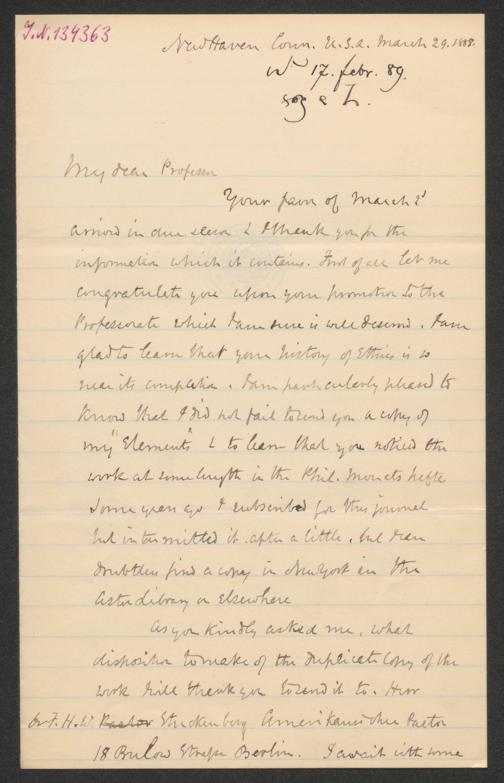 J.N. 134363
New Haven Conn. U.S.A. March 29. 1888.
17. febr. 89.
My dear Professor
Your favor of March 2d
arrived in due season & I thank you for the
information which it contains. First of all let me
congratulate you upon your promotion to the
Professorate which I am sure is well deserved. I am
glad to learn that your history of Ethics is so
near its completion. I am particularly pleased to
know that I did not fail to send you a copy of
my "Elements" & to learn that you noticed the
work at some length in the Phil. Monatshefte
Some years ago I subscribed for this journal
but intermitted it after a little, but I can
doubtless find a copy in New York in the
Astor Library or elsewhere
As you kindly asked me, what
disposition to make of the duplicate copy of the
work I will thank you to send it to Herr
Dr F. H. W. Pastor Stuckenberg Amerikanischer Pastor
18 Bulow Strasse Berlin. I await with some